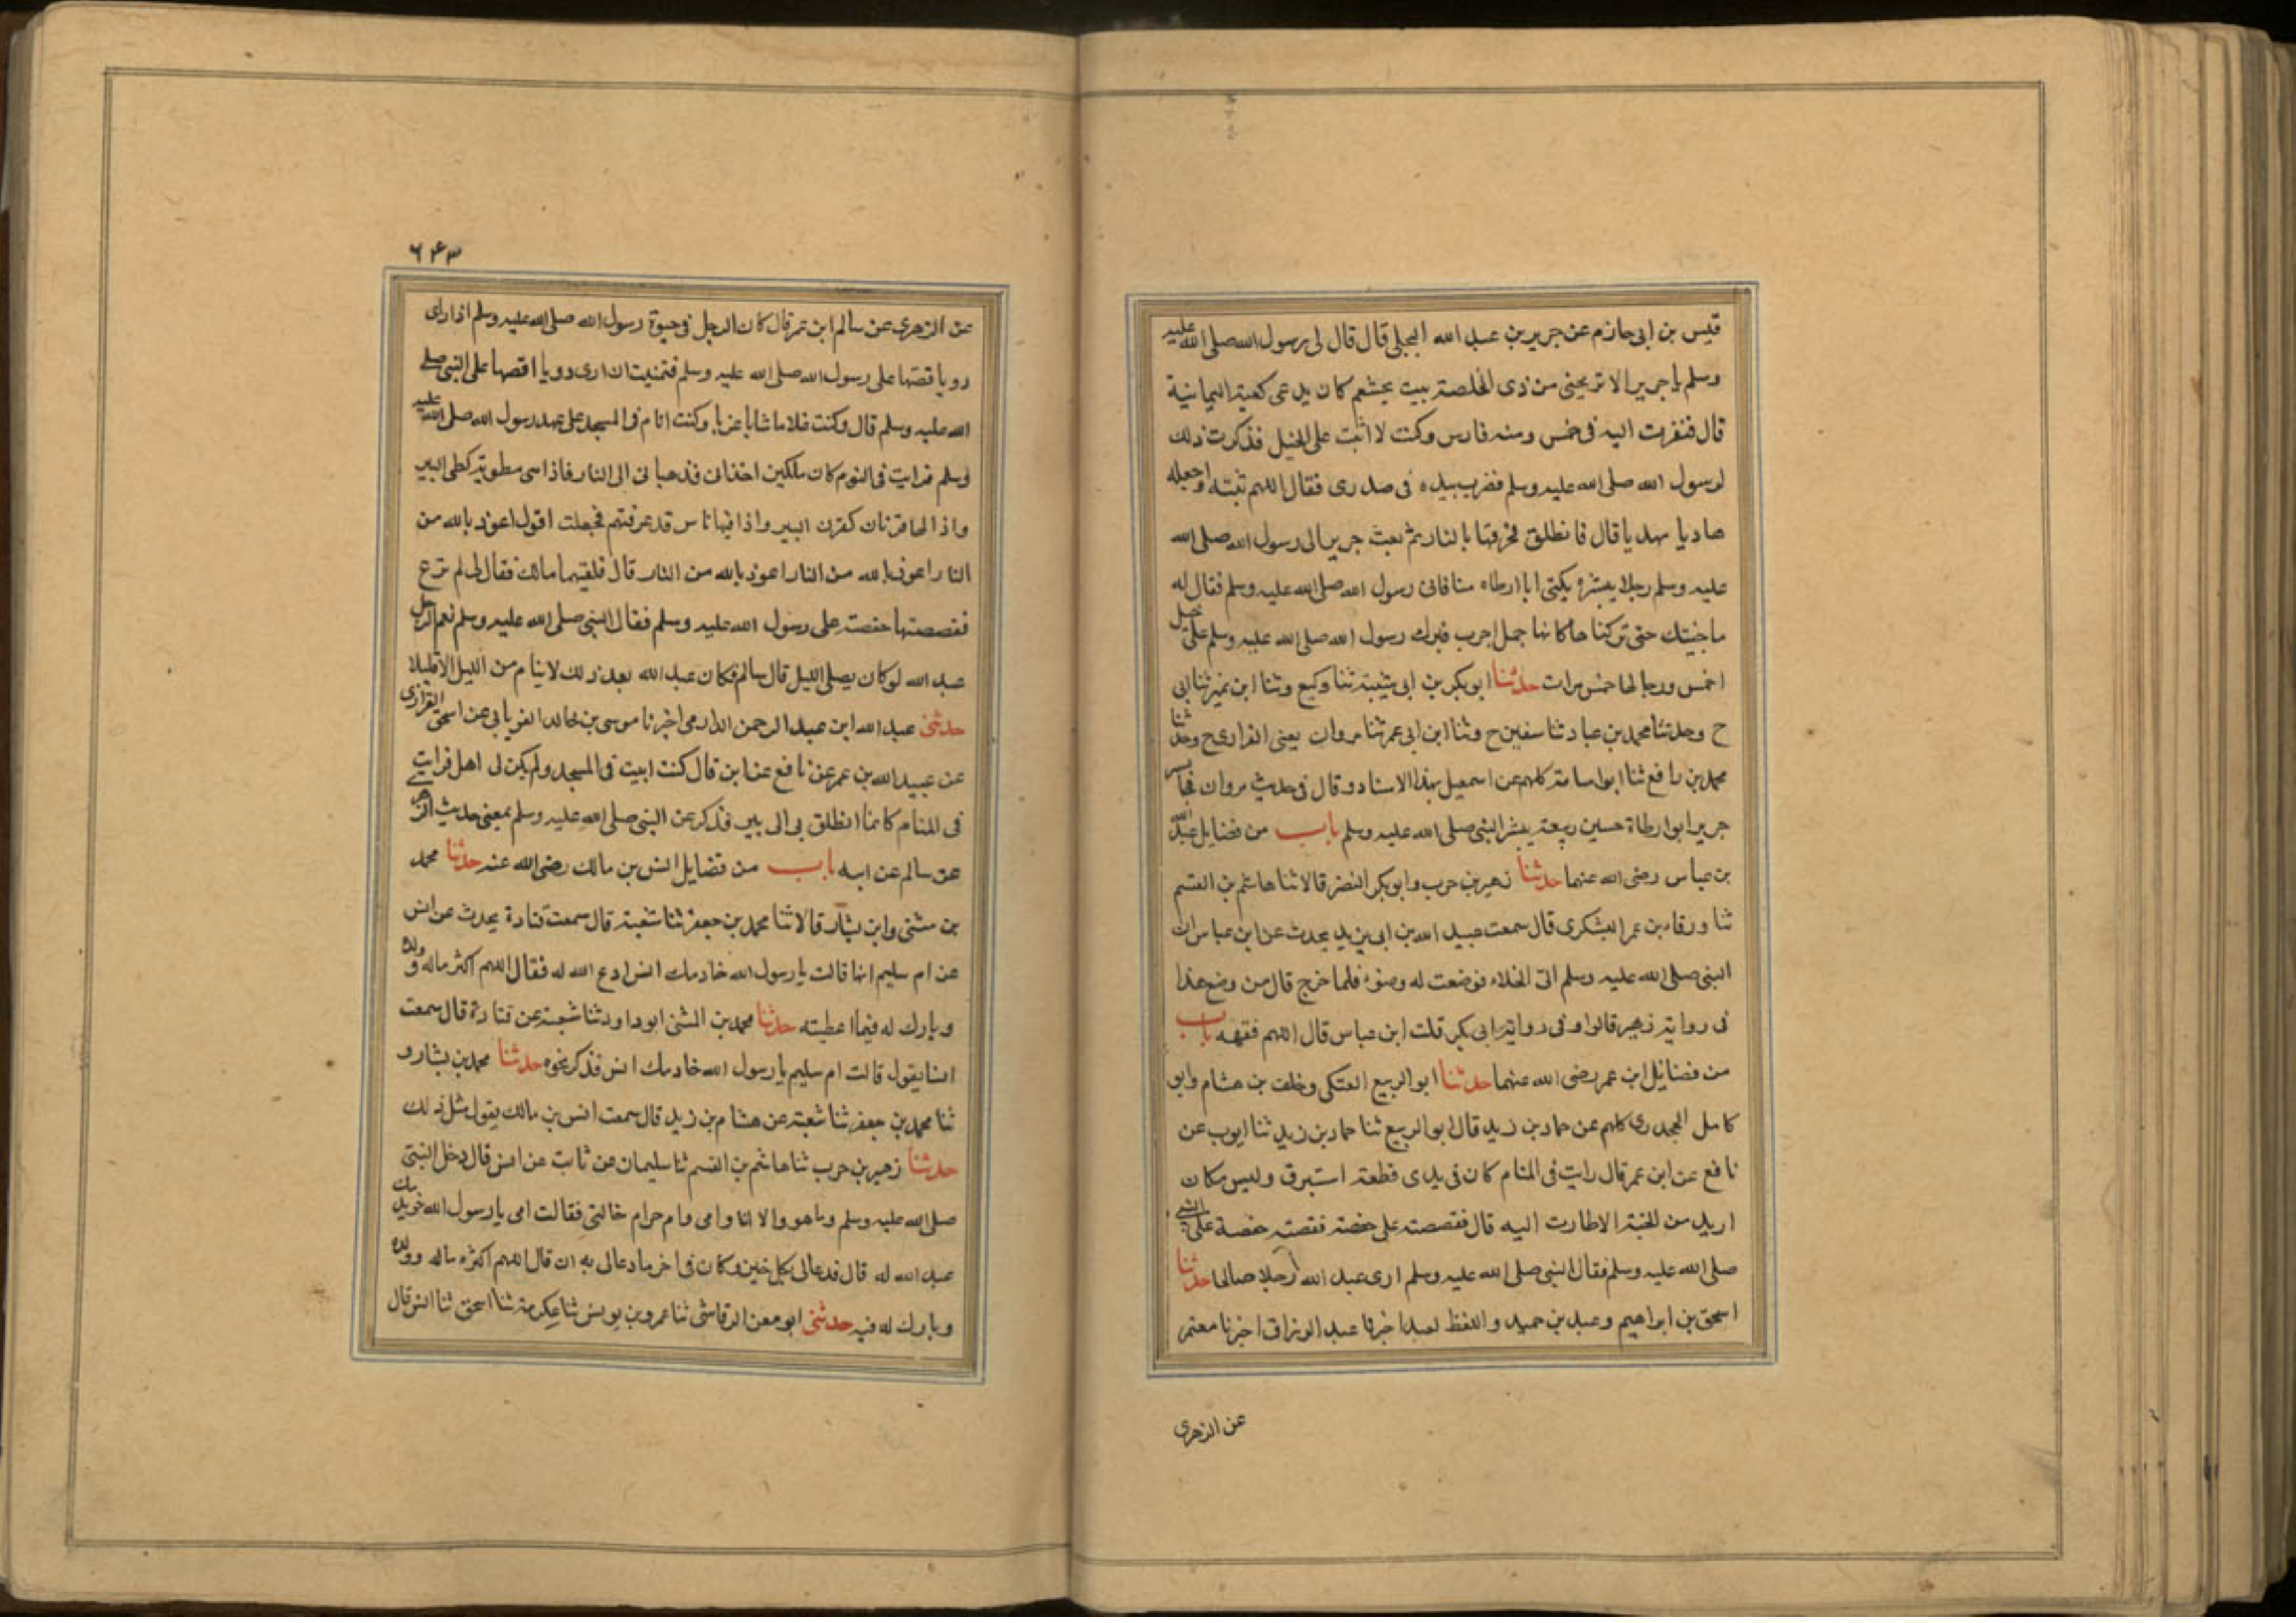 قيس بن ابى حازم عن جرير بن عبد الله البجلى قال قال لى رسول الله صلى الله عليه
وسلم يا جرير الا تريحنى من ذى الخلصة بيت بخشعم كان يدعى كعبة اليمانية
قال فنفرت اليه فى خمس ومنه فارس وكنت لا اثبت على الخيل فذكرت ذلك
لرسول الله صلى الله عليه وسلم فضرب بيده فى صدرى فقال اللهم ثبته واجعله
هاديا مهديا قال فانطلق فخرقها بالنار ثم بعث جرير الى رسول الله صلى الله
عليه وسلم رجلا يبشره يكنى ابا ارطاه منا فاتى رسول الله صلى الله عليه وسلم فقال له
ما جئتك حتى تركنا ها كانها جمل اجرب فبرك رسول الله صلى الله عليه وسلم على خيل
احمس ورجالها خمس مرات حدثنا ابو بكر بن ابى شيبة ثنا وكيع وثنا ابن نمير ثنا ابى
ح وحدثنا محمد بن عباد ثنا سفين ح وثنا ابن ابى عمر ثنا مروان يعنى الفزارى ح وحدثنا
محمد بن رافع ثنا ابو اسامة كلهم عن اسمعيل بهذا الاسناد وقال فى حديث مروان فجا بشير
جرير ابو ارطاة حسين ربيعة يبشر النبى صلى الله عليه وسلم باب من فضايل عبد الله
بن عباس رضى الله عنهما حدثنا زهير بن حرب وابو بكر النضر قالا ثنا هاشم بن القسم
ثنا ورقاء بن عمر اليشكرى قال سمعت عبيد الله بن ابى يزيد يحدث عن ابن عباس ان
النبى صلى الله عليه وسلم اتى الخلاء فوضعت له وضوء فلما خرج قال من وضع هذا
فى رواية زهير قالوا وفى رواية ابى بكر قلت ابن عباس قال اللهم فقهه باب
من فضائل ابن عمر رضى الله عنهما حدثنا ابو الربيع العتكى وخلف بن هشام وابو
كامل الجحدرى كلهم عن حماد بن زيد قال ابو الربيع ثنا حماد بن زيد ثنا ايوب عن
نافع عن ابن عمر قال رايت فى المنام كان فى يدى قطعة استبرق وليس مكان
اريد من الجنة الا طارت اليه قال فقصصته على حفصة فقصته حفصة على النبى
صلى الله عليه وسلم فقال النبى صلى الله عليه وسلم ارى عبد الله رجلا صالحا حدثنا
اسحق بن ابراهيم وعبد بن حميد واللفظ لعبد اخبرنا عبد الرزاق اخبرنا معتمر
عن الزهرى
٦۴٣
عن الزهرى عن سالم ابن عمر قال كان الرجل فى حيوة رسول الله صلى الله عليه وسلم اذا راى
رويا قصها على رسول الله صلى الله عليه وسلم فتمنيت ان ارى رويا اقصها على النبى صلى
الله عليه وسلم قال وكنت غلاما شابا عزبا وكنت انام فى المسجد على عهد رسول الله صلى الله عليه
وسلم فرايت فى النوم كان ملكين اخذانى فذهبا نى الى النار فاذا سى مطوية كطى البير
واذا لها قرنان كقرن البير واذا فيها ناس قد عرفتهم فجعلت اقول اعوذ بالله من
النار اعوذ بالله من النار اعوذ بالله من النار قال فلقيهما مالك فقال لى لم ترع
فقصصتها حفصة على رسول الله عليه وسلم فقال النبى صلى الله عليه وسلم نعم الرجل
عبد الله لو كان يصلى الليل قال سالم فكان عبد الله بعد ذلك لا ينام من الليل الا قليلا
حدثنى عبد الله ابن عبد الرحمن الدارمى اخبرنا موسى بن خالد الفريابى عن اسحق الفزارى
عن عبيد الله بن عمر عن نافع عن ابن قال كنت ابيت فى المسجد ولم يكن لى اهل فرايت
فى المنام كانما انطلق بى الى بير فذكر عن النبى صلى الله عليه وسلم بمعنى حديث الزهرى
عن سالم عن ابيه باب من فضايل انس بن مالك رضى الله عنه حدثنا محمد
بن مثنى وابن بشار قالا ثنا محمد بن جعفر ثنا شعبة قال سمعت قتادة يحدث عن انس
عن ام سليم انها قالت يا رسول الله خادمك انس ادع الله له فقال اللهم اكثر ماله وولده
وبارك له فيما اعطيته حدثنا محمد بن المثنى ابو داود ثنا شعبة عن قتادة قال سمعت
انسا يقول قالت ام سليم يا رسول الله خادمك انس فذكر نحوه حدثنا محمد بن بشار و
ثنا محمد بن جعفر ثنا شعبة عن هشام بن زيد قال سمعت انس بن مالك يقول مثل ذلك
حدثنا زهير بن حرب ثنا هاشم بن القسم ثنا سليمان عن ثابت عن انس قال دخل النبى
صلى الله عليه وسلم وما هو والا انا وامى وام حرام خالتى فقالت امى يا رسول الله خويدمك
عبد الله له قال فدعا لى بكل خير وكان فى اخر ما دعا لى به ان قال اللهم اكثره ماله وولده
وبارك له فيه حدثنى ابو معن الرقاشى ثنا عمرو بن يونس ثنا عكرمة ثنا اسحق ثنا انس قال